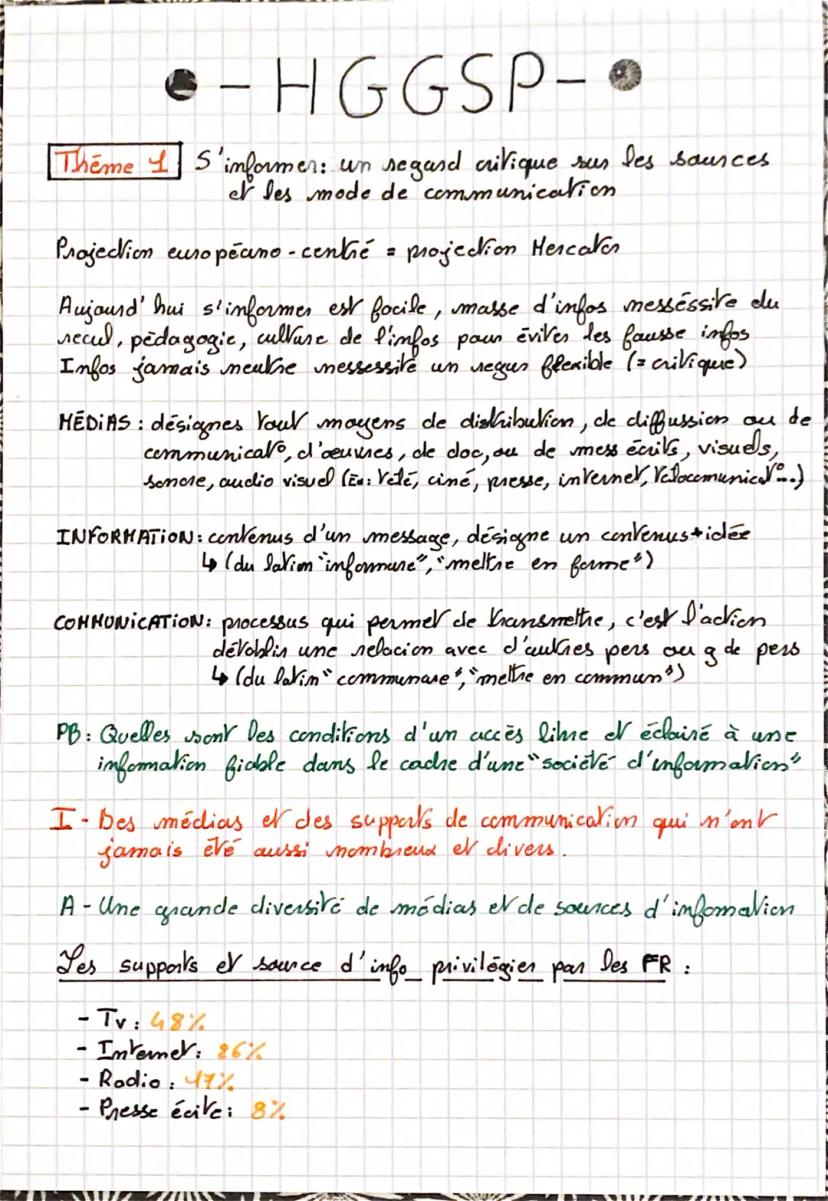 - HGGSP -
Thème 1 S'informer: un regard critique sur les sources
et les mode de communication
Projection européano-centré = projection Mercator
Aujourd'hui s'informer est facile, masse d'infos messéssite du
recul, pédagogie, culture de l'infos pour éviter les fausse infos
Infos jamais neutre messessité un regur flexible (= critique)
MÉDIAS : désignes tout moyens de distribution, de diffussion ou de
communicat°, d'œuvres, de doc, ou de mess écrits, visuels,
sonore, audio visuel (Ex: télé, ciné, presse, internet, télécomunicat°...)
INFORMATION: contenus d'un message, désigne un contenus + idée
↳ (du latin "informare", "mettre en forme")
COMMUNICATION: processus qui permet de transmettre, c'est l'action
détoblir une relacion avec d'autres pers ou g de pers
↳ (du latin "communare", "mettre en commun")
PB: Quelles sont les conditions d'un accès libre et éclairé à une
information fiable dans le cadre d'une "société d'information"
I - Des médias et des supports de communication qui n'ont
jamais été aussi nombreux et divers.
A - Une grande diversité de médias et de sources d'infomation
Les supports et source d'info privilégier par les FR :
- Tv: 48%
- Internet: 26%
- Radio: 17%
- Presse écite: 8%